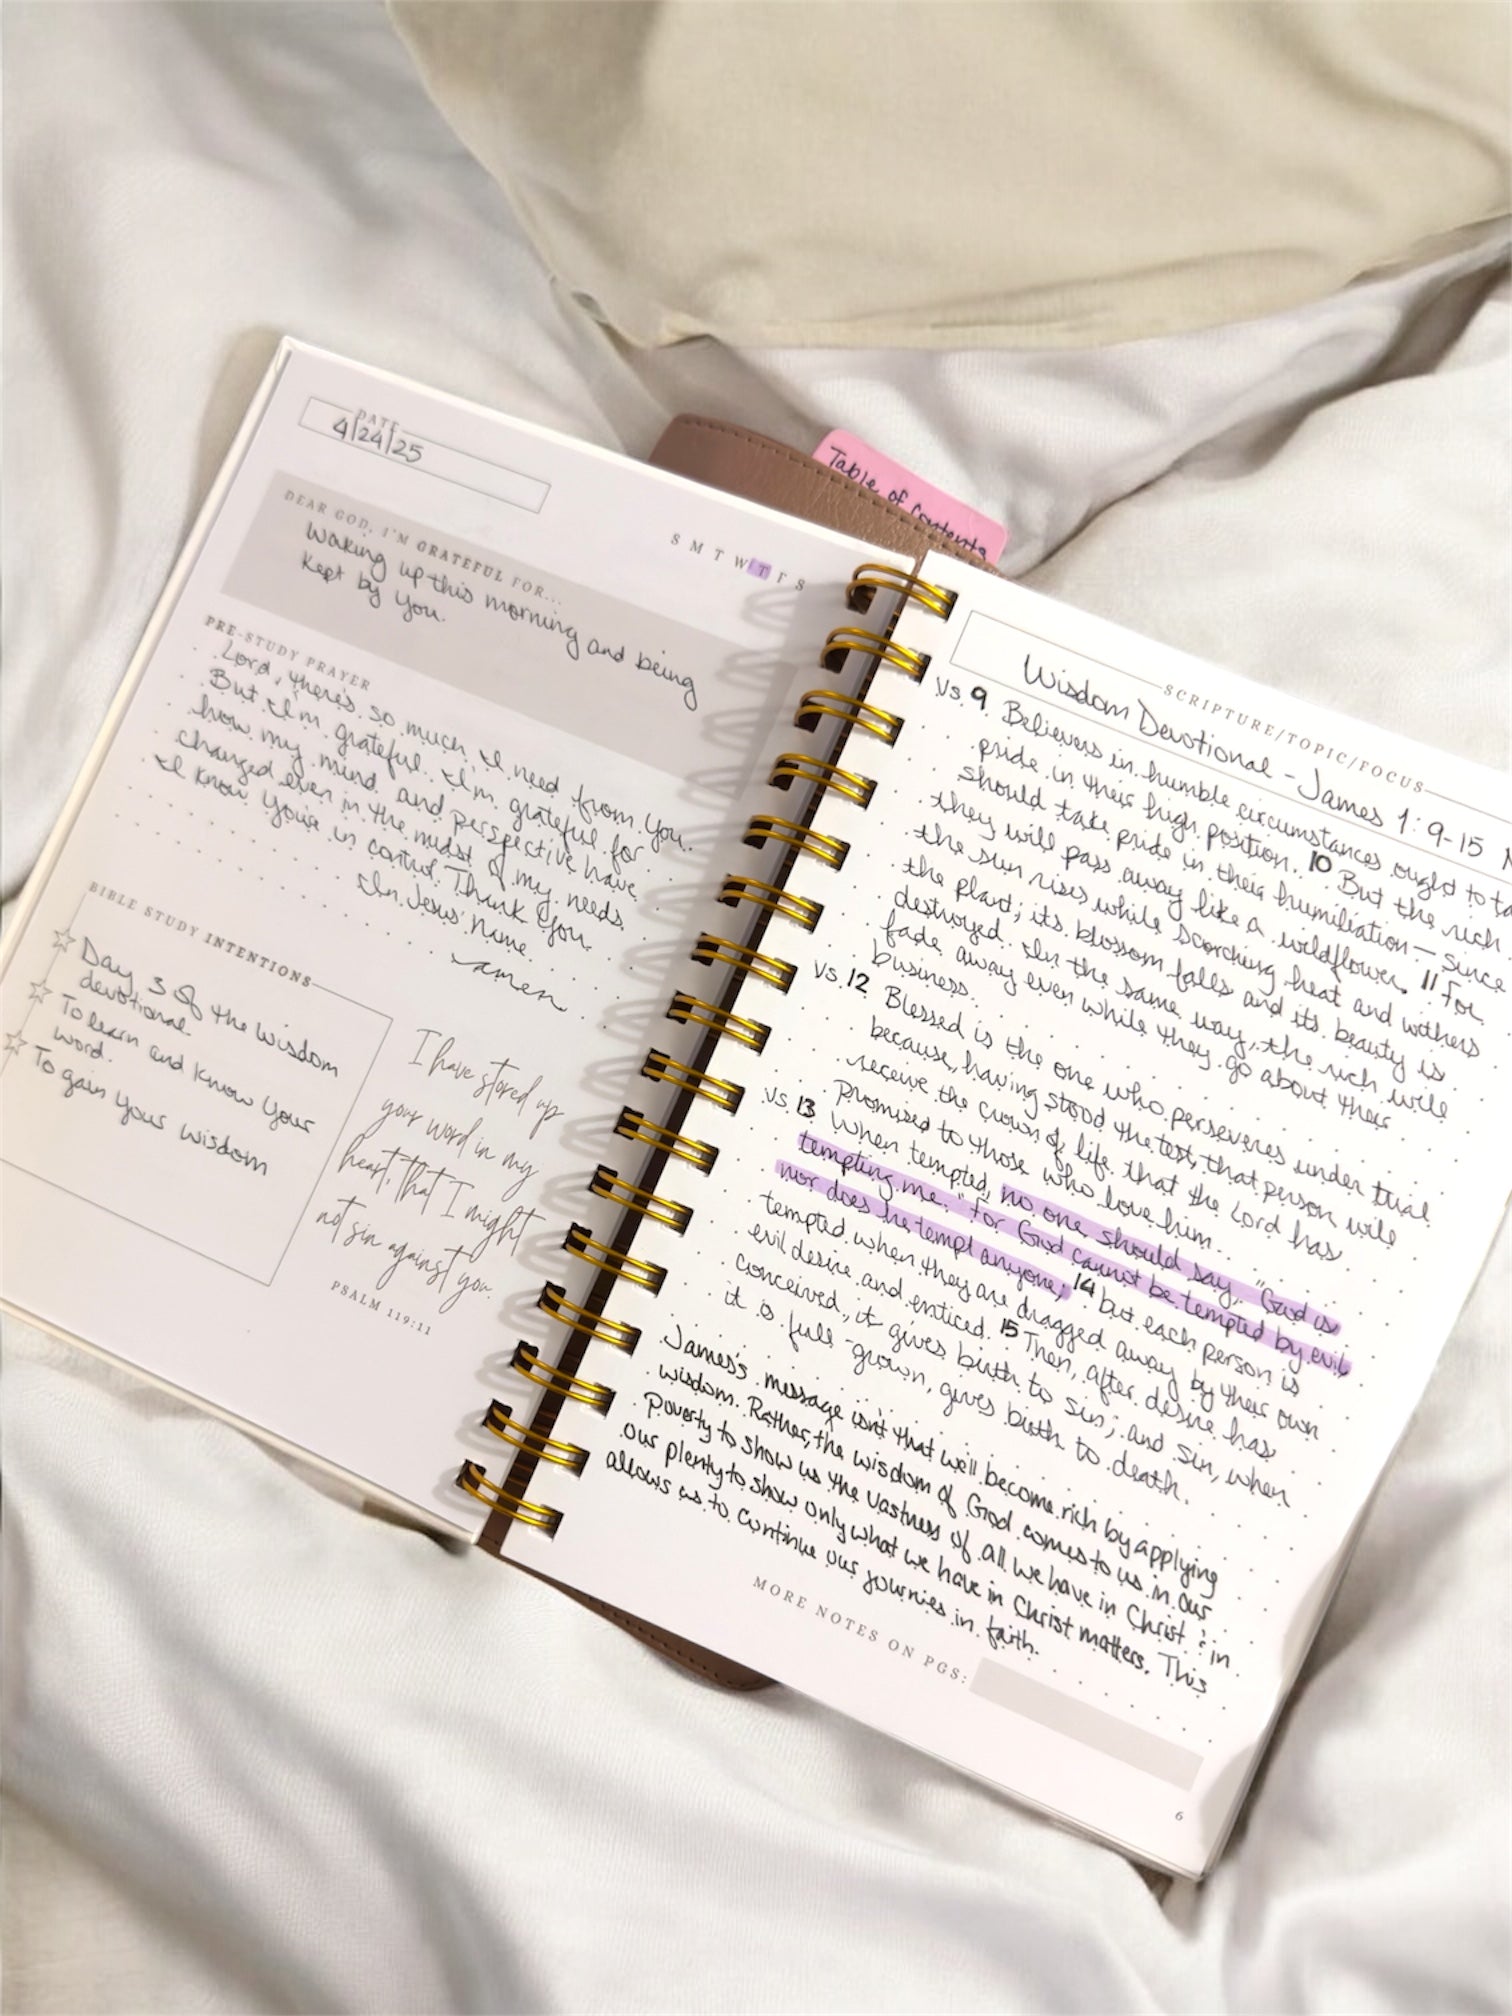 DATE
4/24/25
S M T W T F S
DEAR GOD, I'M GRATEFUL FOR...
Waking up this morning and being
kept by You.
PRE-STUDY PRAYER
Lord, there's so much I need from You.
But I'm grateful. I'm grateful for
how my mind and perspective have
changed even in the midst of my needs.
I know You're in control. Thank You.
In Jesus' Name
amen
BIBLE STUDY INTENTIONS
Day 3 of the Wisdom
devotional
To learn and know Your
word.
To gain Your wisdom
I have stored up
your word in my
heart, that I might
not sin against you.
PSALM 119:11
Table of Contents
SCRIPTURE/TOPIC/FOCUS
Wisdom Devotional - James 1:9-15
Vs. 9 Believers in humble circumstances ought to
pride in their high position. 10 But the rich
should take pride in their humiliation — since
they will pass away like a wildflower. 11 For
the sun rises while scorching heat and withers
the plant; its blossom falls and its beauty is
destroyed. In the same way, the rich will
fade away even while they go about their
business.
Vs. 12 Blessed is the one who perseveres under trial
because, having stood the test, that person will
receive the crown of life that the Lord has
promised to those who love him.
Vs. 13 When tempted, no one should say, "God is
tempting me." For God cannot be tempted by evil,
nor does he tempt anyone; 14 but each person is
tempted when they are dragged away by their own
evil desire and enticed. 15 Then, after desire has
conceived, it gives birth to sin; and sin, when
it is full-grown, gives birth to death.
James's message isn't that we'll become rich by applying
wisdom. Rather, the wisdom of God comes to us in our
poverty to show us the vastness of all we have in Christ & in
our plenty to show only what we have in Christ matters. This
allows us to continue our journies in faith.
MORE NOTES ON PGS:
6